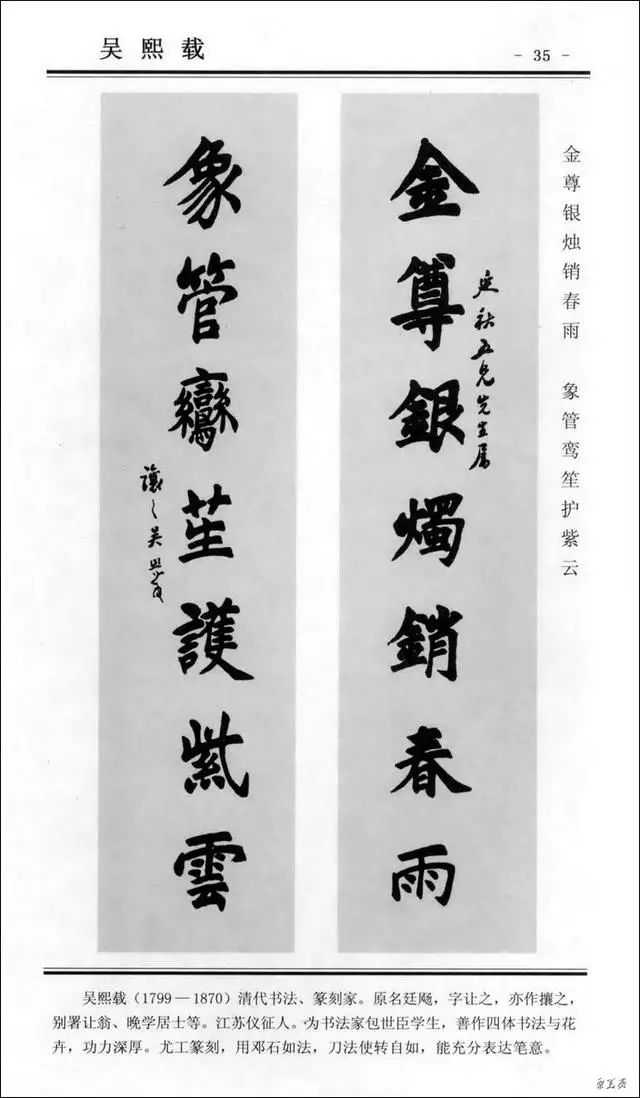 吴熙载
- 35 -
金尊银烛销春雨 象管鸾笙护紫云
金尊銀燭銷春雨
延秋五兄先生属
象管鸞笙護紫雲
讓之吴熙載
吴熙载(1799—1870)清代书法、篆刻家。原名廷飏,字让之,亦作攘之,
别署让翁、晚学居士等。江苏仪征人。为书法家包世臣学生,善作四体书法与花
卉,功力深厚。尤工篆刻,用邓石如法,刀法使转自如,能充分表达笔意。